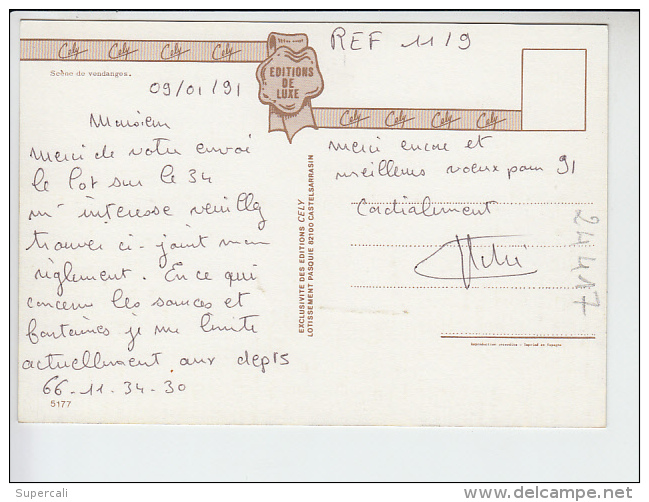 Cely Cely Cely Cely
Scène de vendanges.
EDITIONS
DE
LUXE
REF 11/9
09/01/91
Cely Cely Cely Cely
Monsieur
merci de votre envoi
le lot sur le 34
m'interesse veuillez
trouver ci-joint mon
règlement. En ce qui
concerne les sources et
fontaines je me limite
actuellement aux depts
66-11-34-30
5177
EXCLUSIVITE DES EDITIONS CELY
LOTISSEMENT PASQUIE 82100 CASTELSARRASIN
merci encore et
meilleurs voeux pour 91
Cordialement
24417
Reproduction interdite - Imprimé en Espagne
Supercali
www.delcampe.net